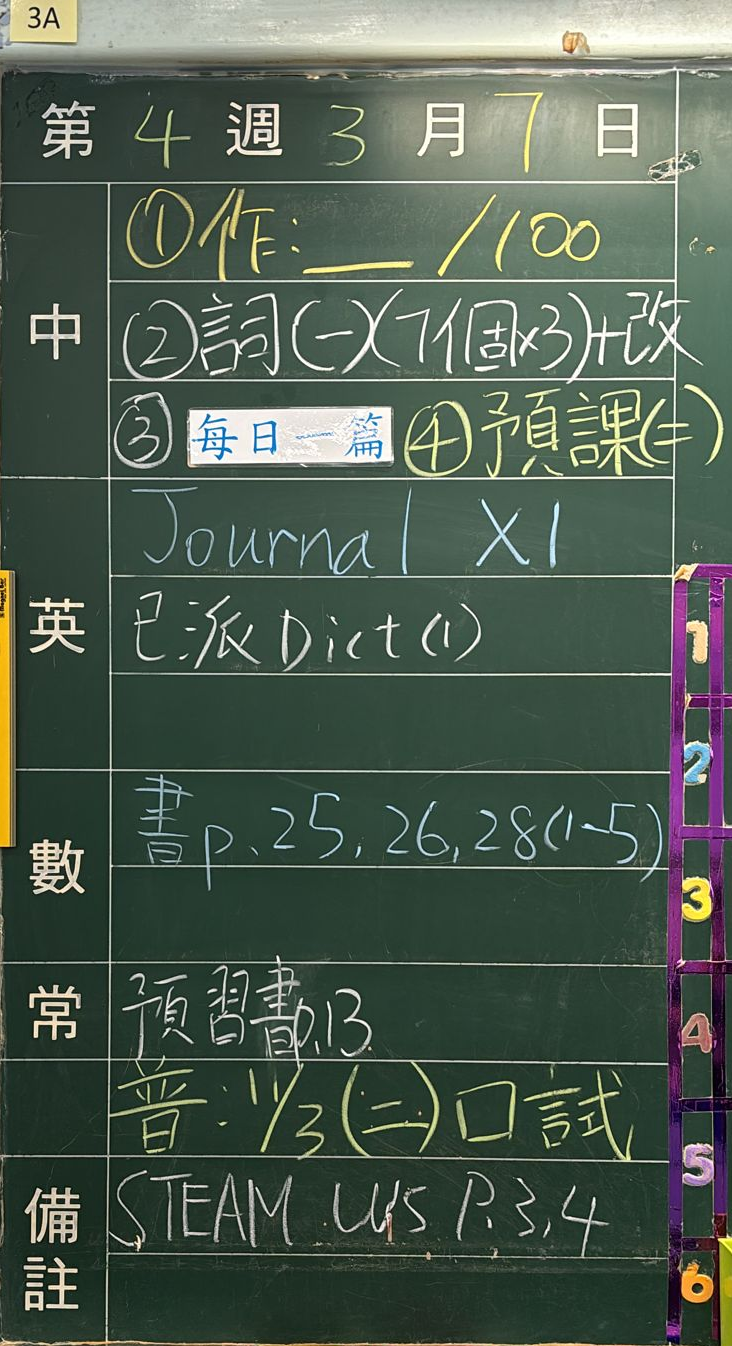 3A
第4週3月7日
中
①作:__/100
②詞(一)(7個x3)+改
③每日一篇④預課(二)
英
Journal X1
已派Dict(1)
數
書p.25,26,28(1-5)
常
預習書p.13
普:11/3(二)口試
備註
STEAM WS P.3,4
1
2
3
4
5
6